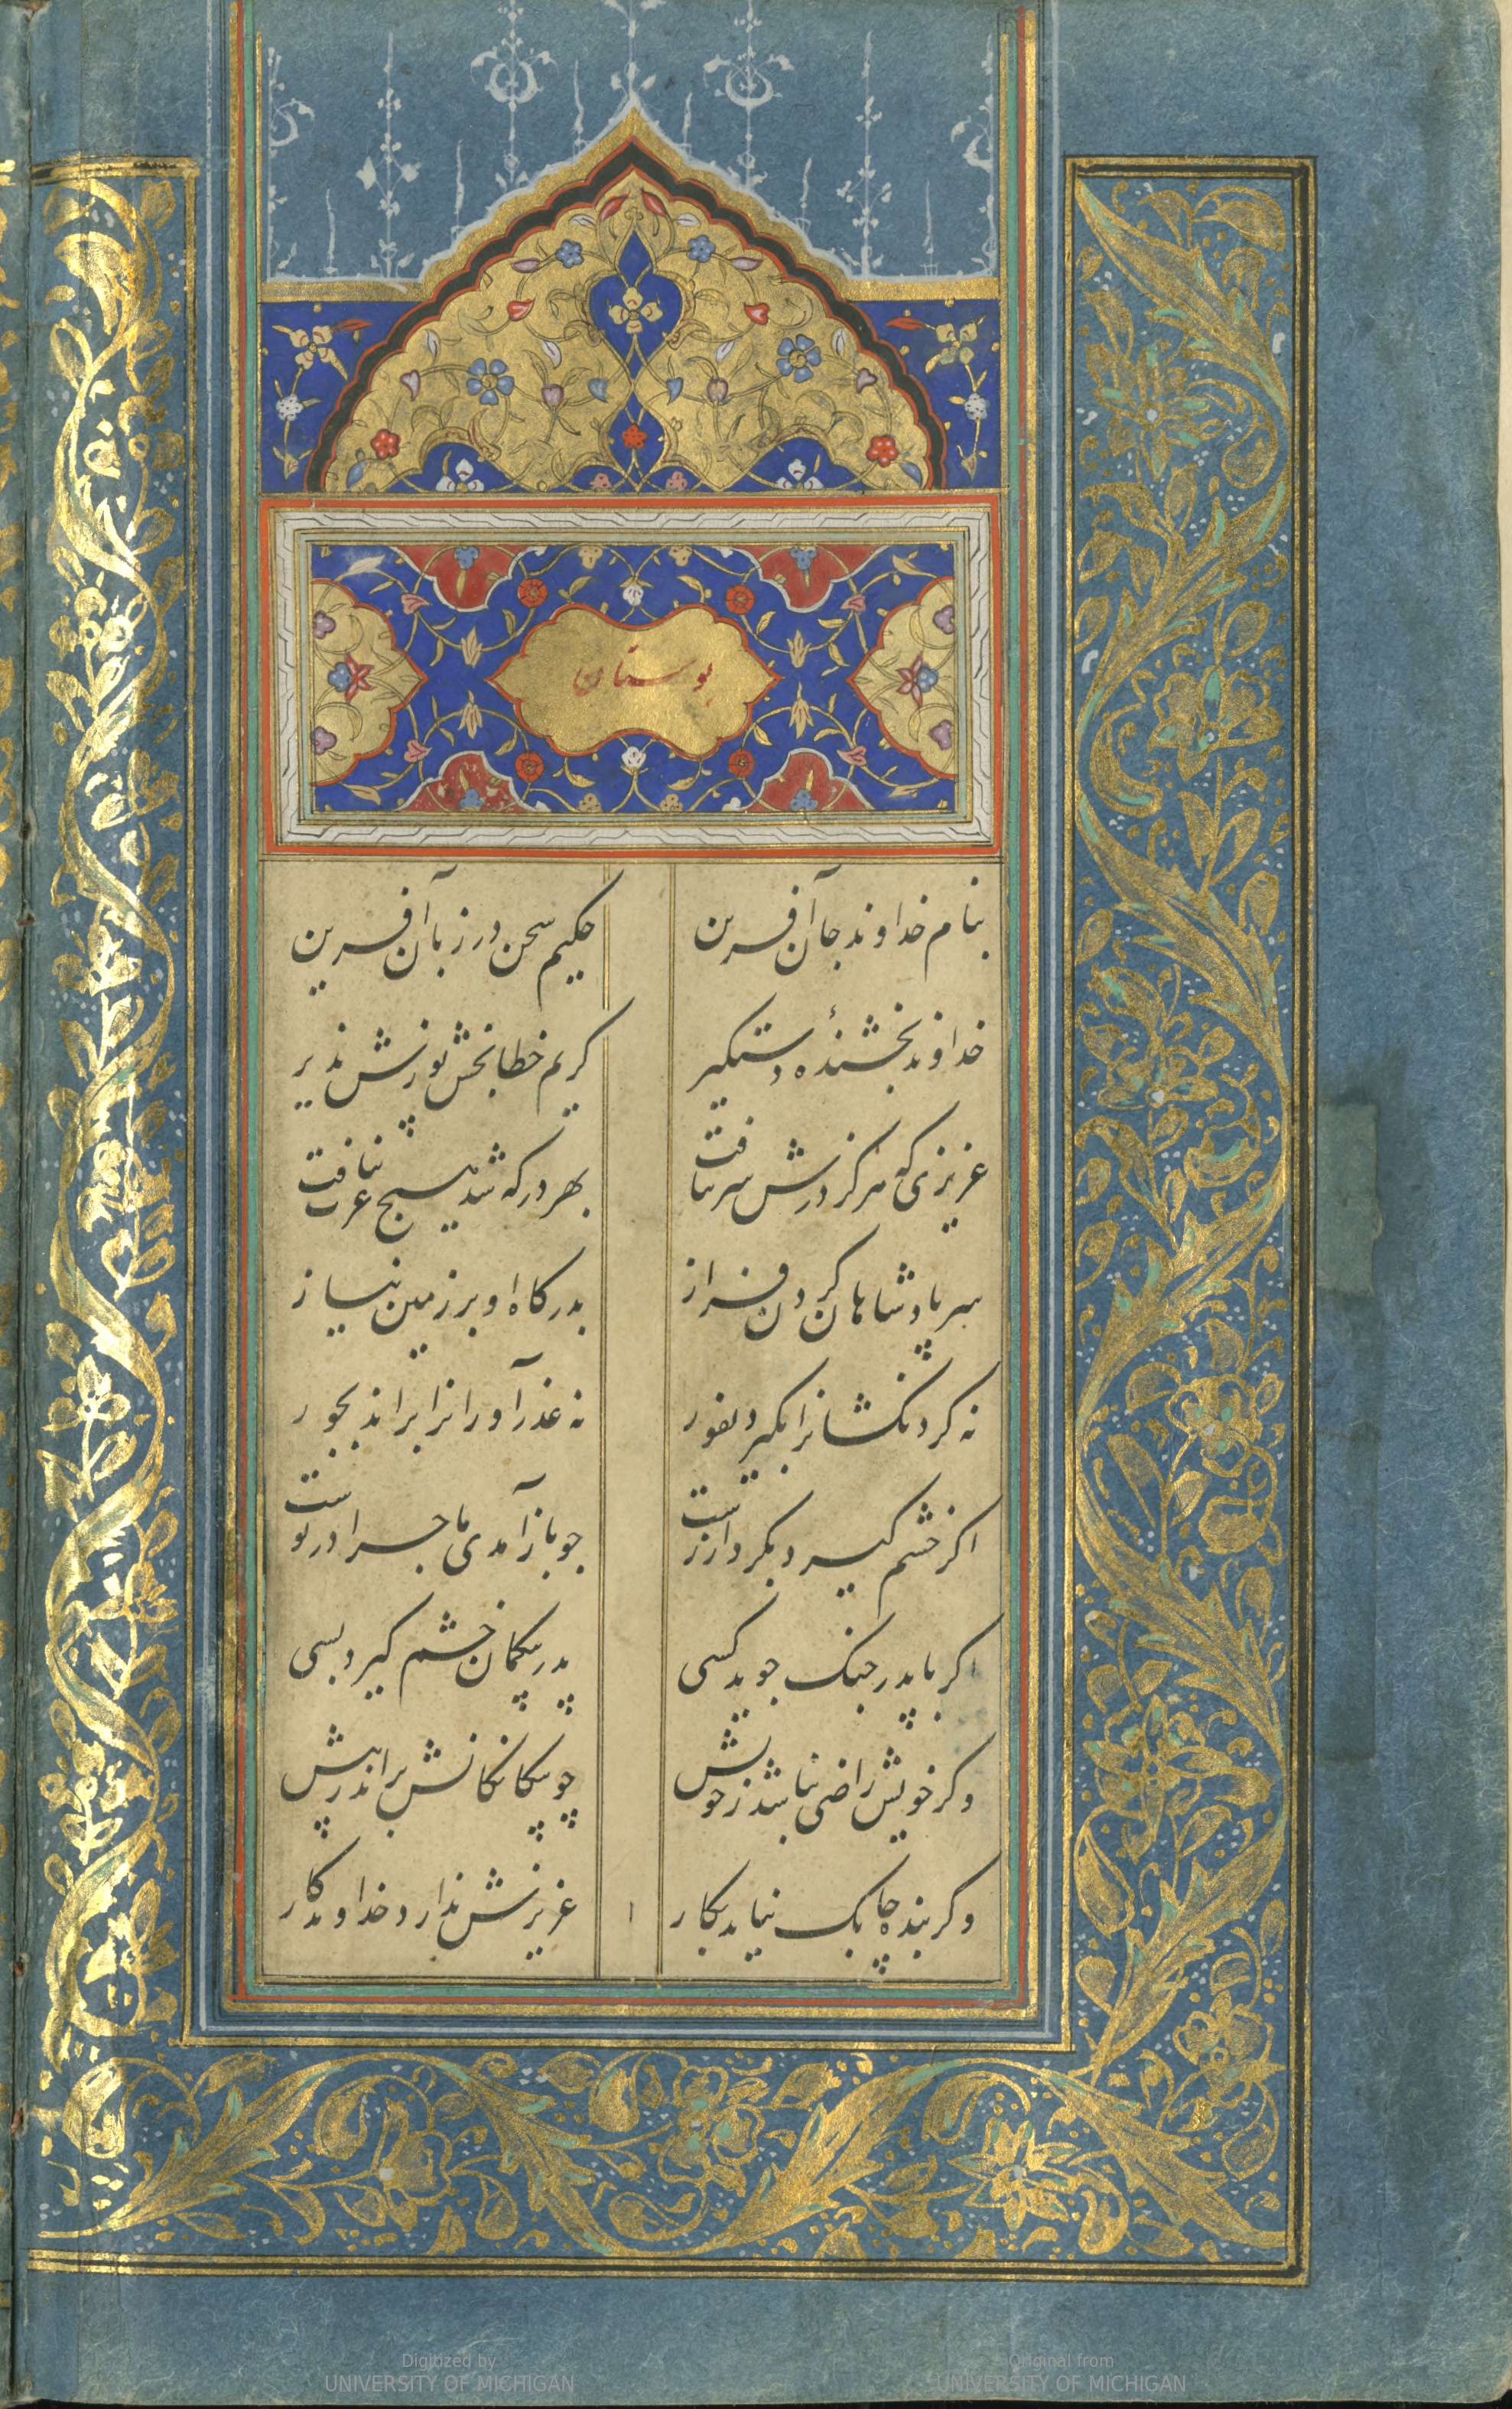 بوستان
بنام خداوند جان آفرین حکیم سخن در زبان آفرین
خداوند بخشندهٔ دستکیر کریم خطابخش پوزش پذیر
عزیزی که هرکز درش سر بتافت بهر در که شد هیچ عزت نیافت
سر پادشاهان کردن فراز بدرکاه او بر زمین نیاز
نه کردنکشانرا بکیرد بفور نه عذرآورانرا براند بجور
اکر خشم کیرد بکردار زشت چو بازآمدی ماجرا در نوشت
اکر با پدر جنک جوید کسی پدر بیکمان خشم کیرد بسی
وکر خویش راضی نباشد ز خویش چو بیکانکانش براند ز پیش
وکر بنده چابک نیاید بکار عزیزش ندارد خداوندکار
۱
Digitized by
UNIVERSITY OF MICHIGAN
Original from
UNIVERSITY OF MICHIGAN